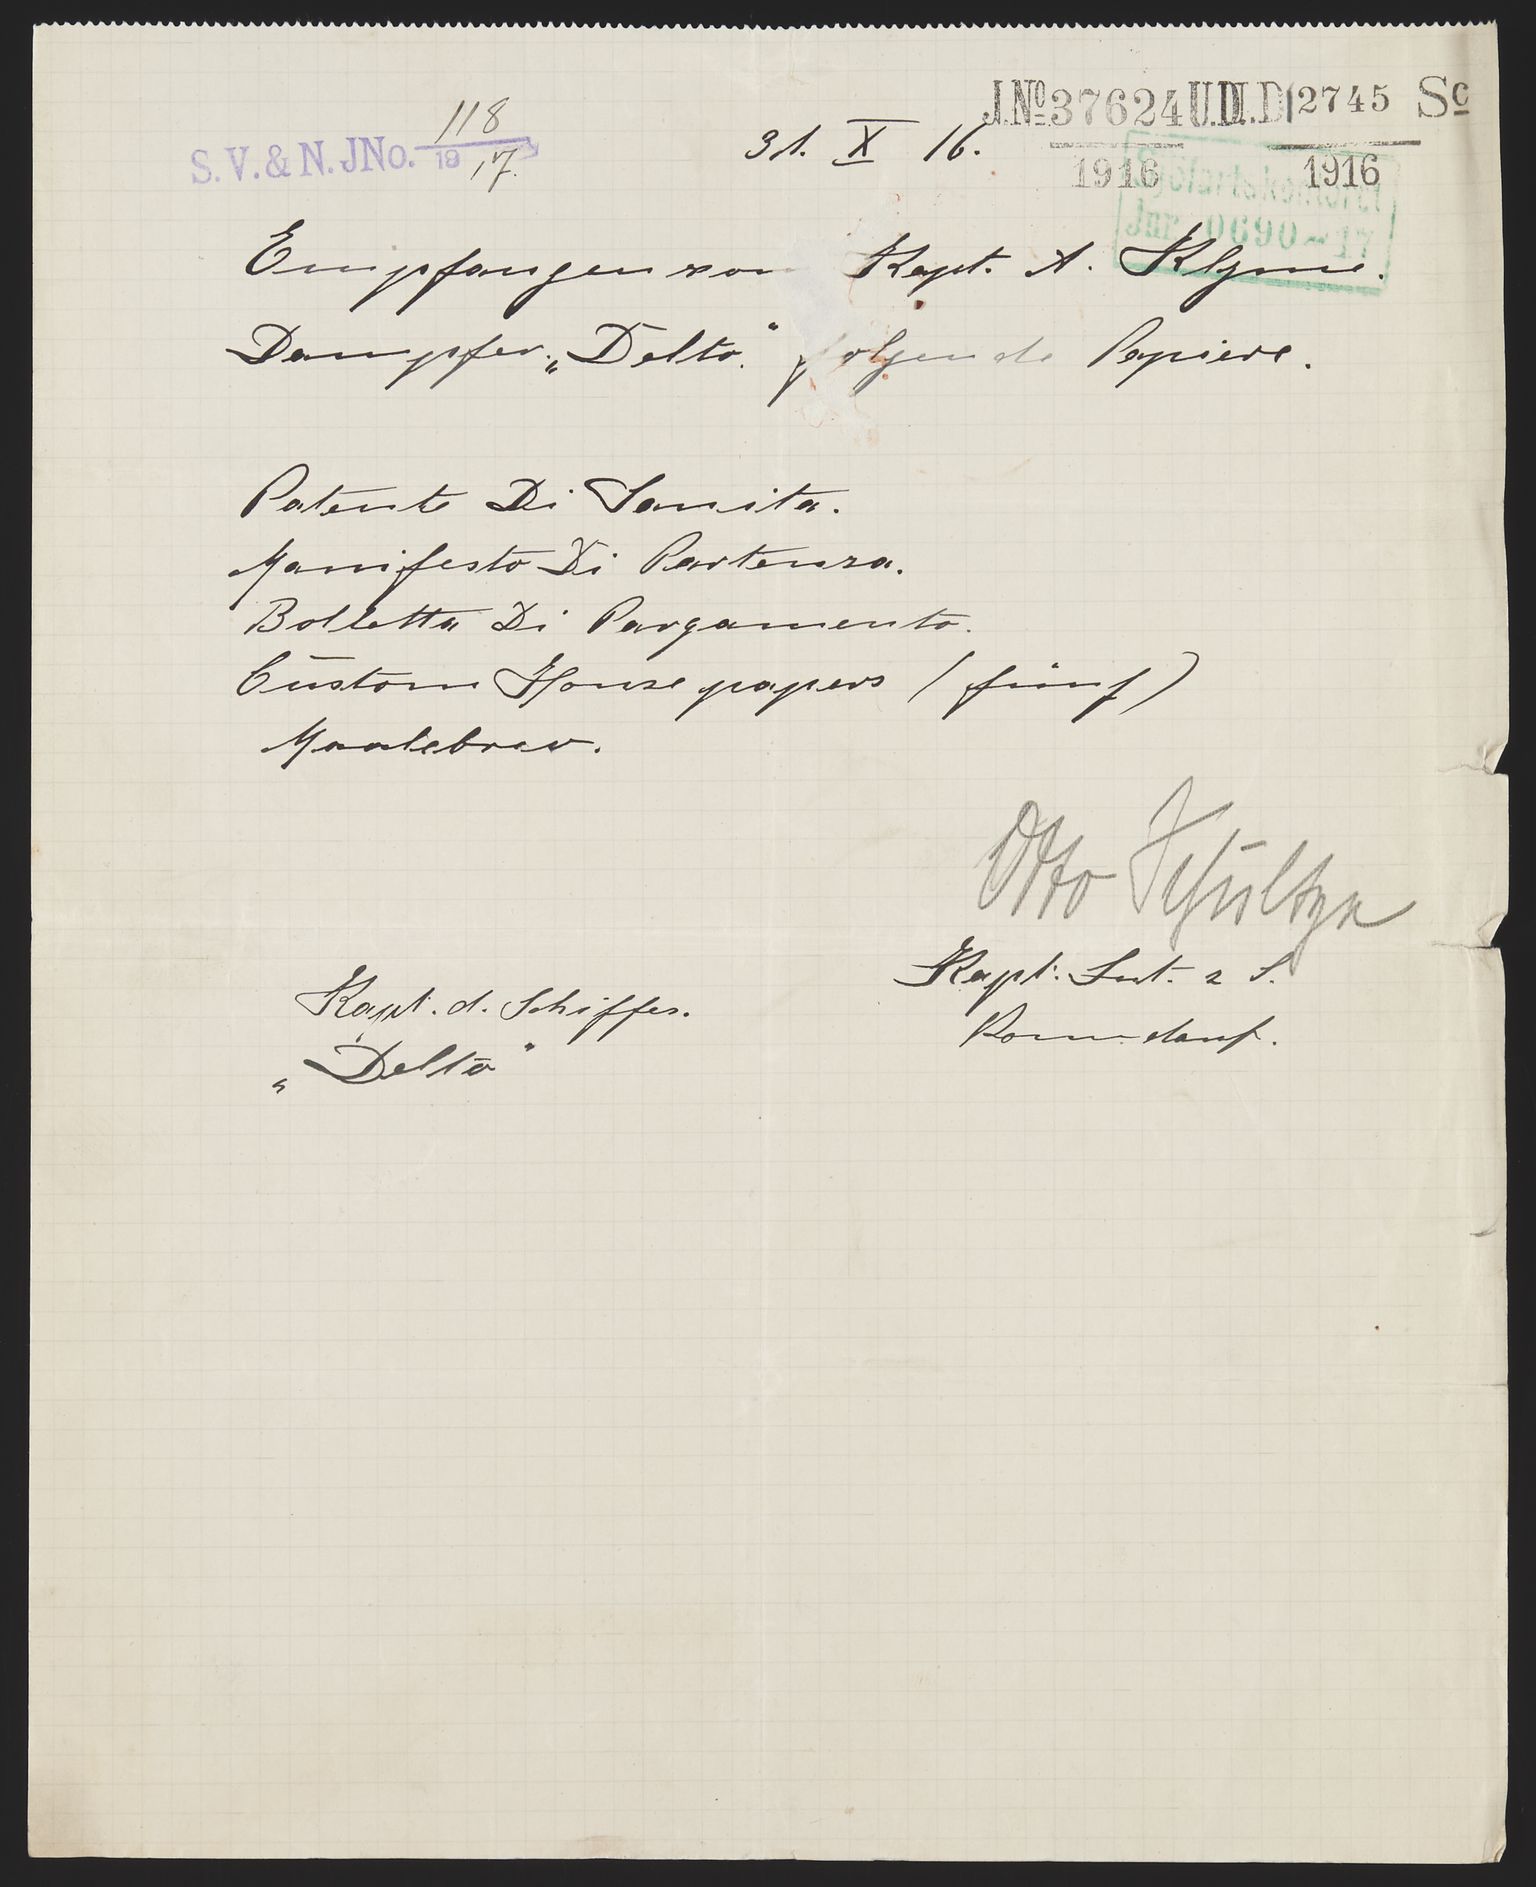 J.No 37624 U.D. 2745 Sc
1916 1916
118
S. V. & N. JNo. 19 17.
31. X 16.
Sjøfartskontoret
Jnr. 0690-17
Empfangen von Kapt. A.
Dampfer „Delto" folgende Papiere.
Patente Di Sanita.
Manifesto Di Partenza.
Bolletta Di Pargamento.
Custom House papers (fünf)
Maalebrev.
Otto Schultze
Kapt. Lnt. z S.
Kapt. d. Schiffes.
„Delto"